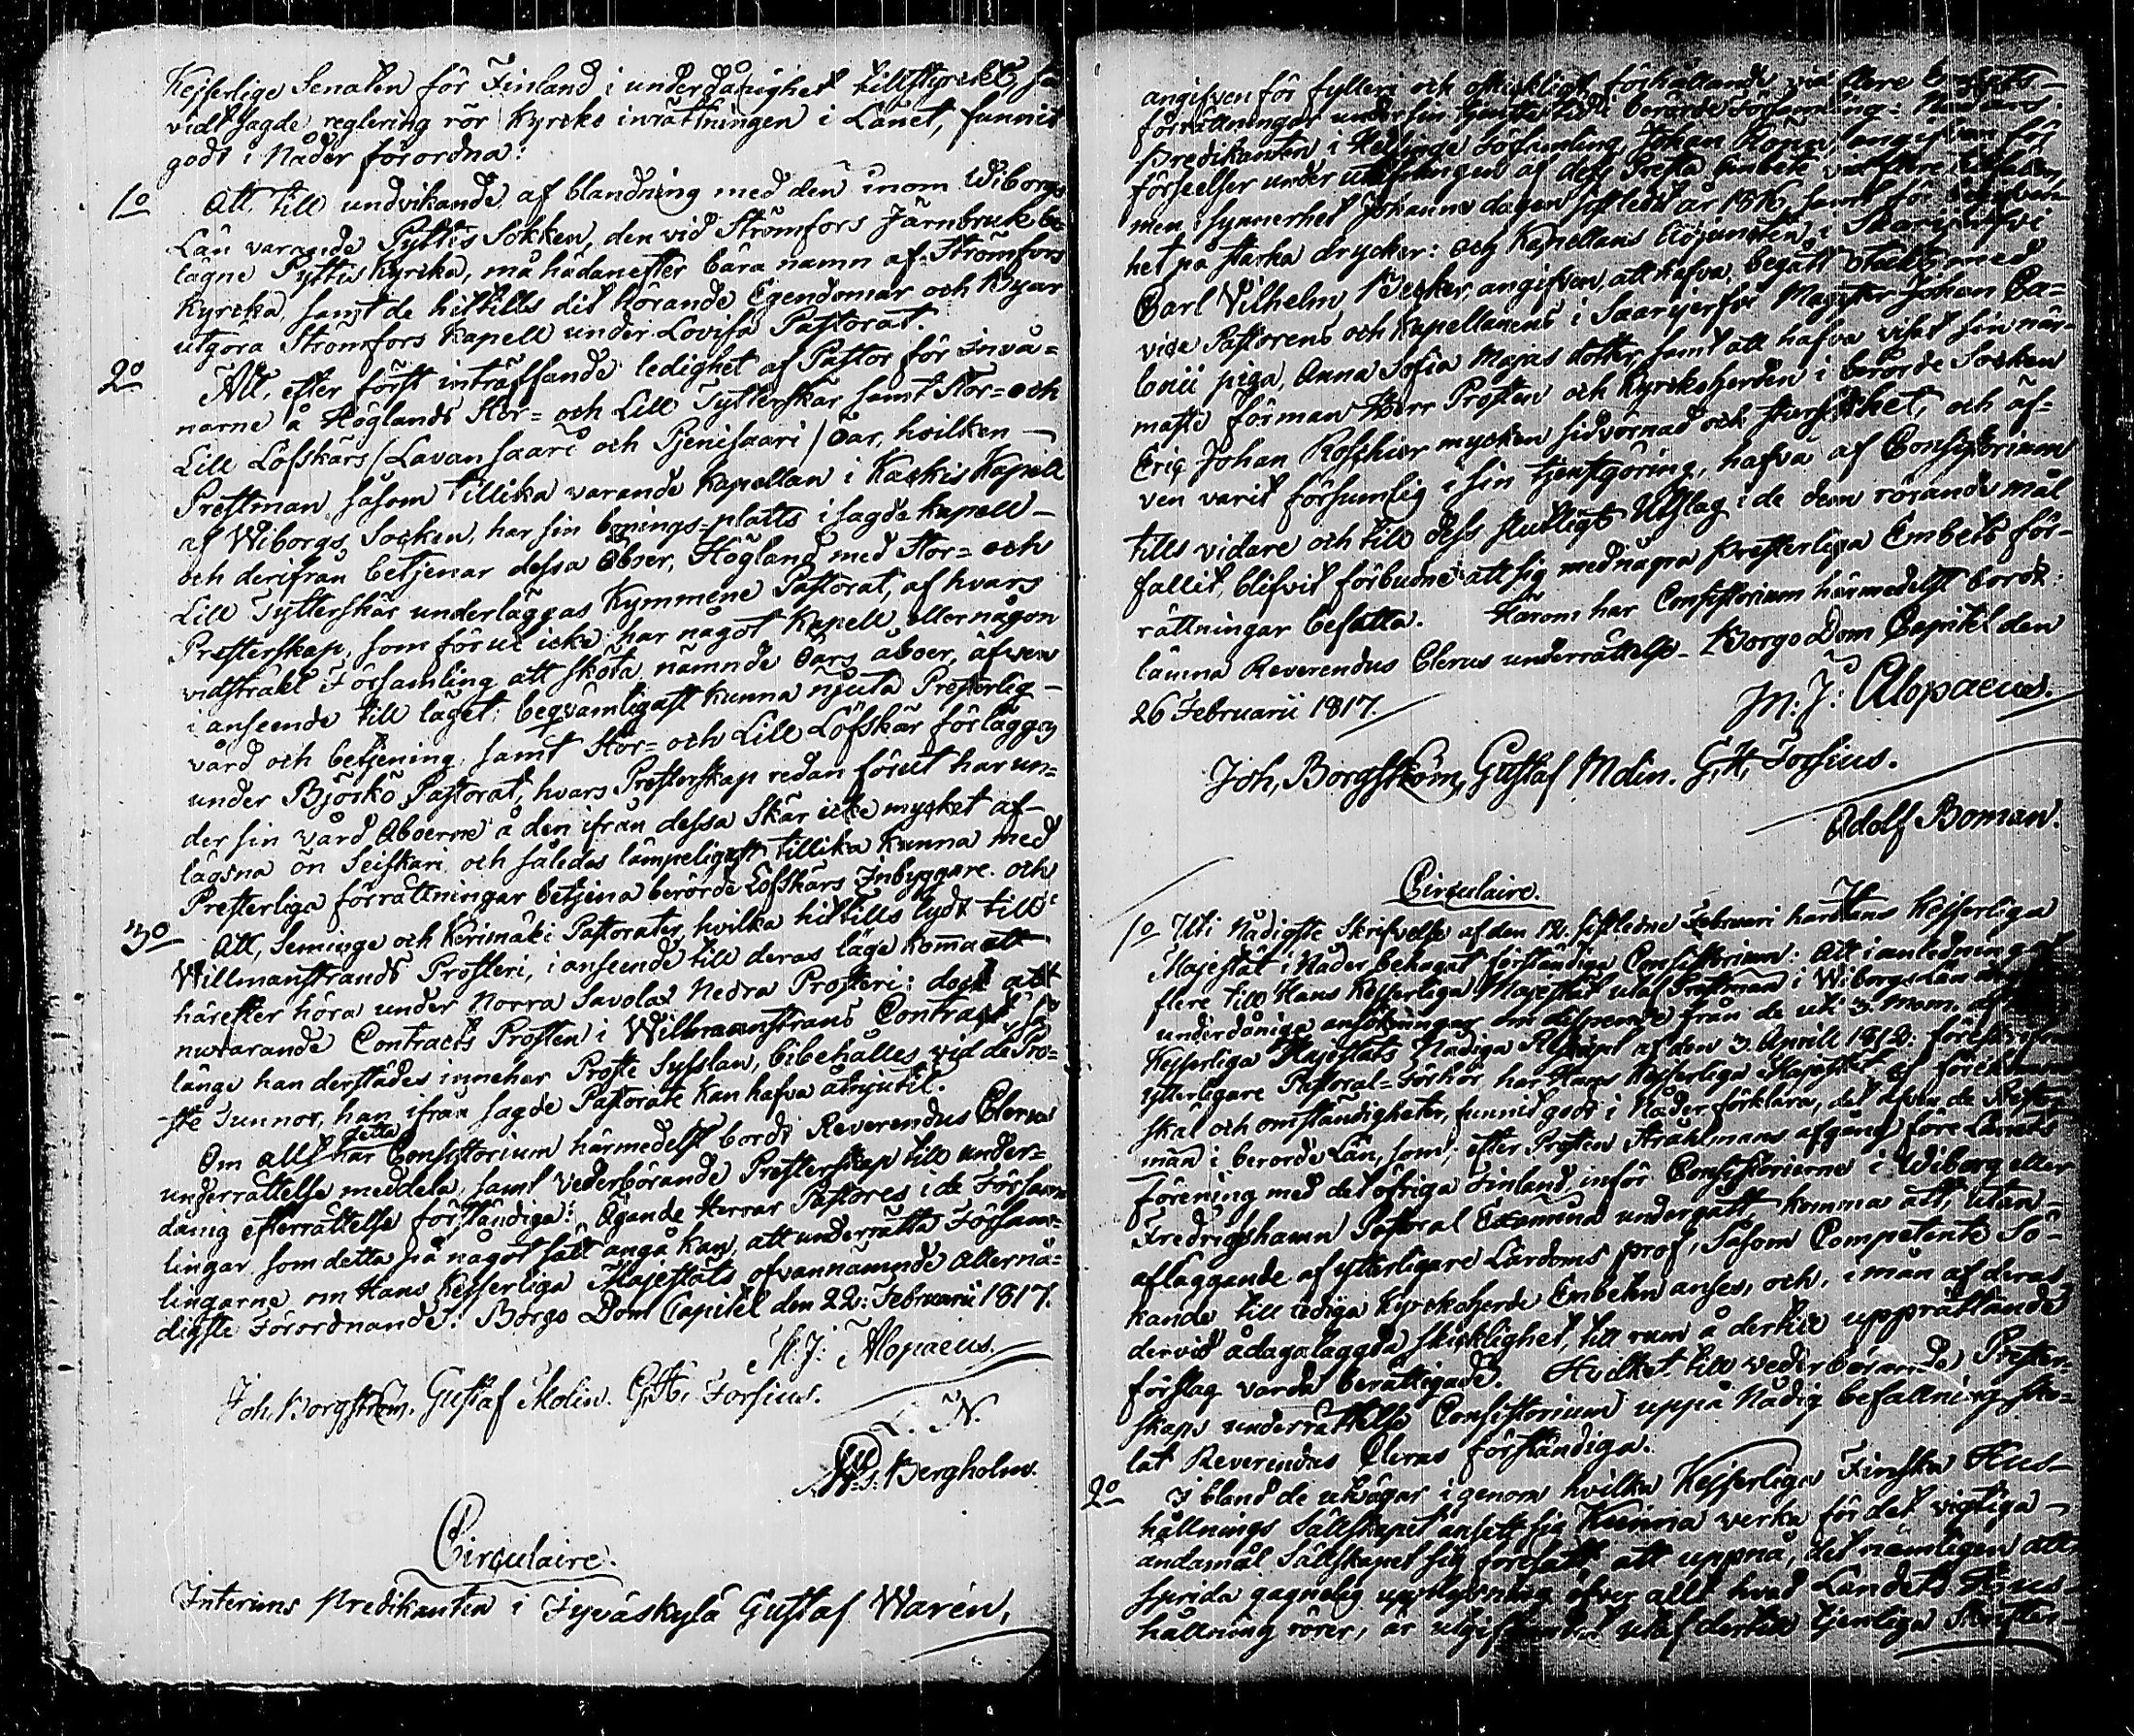 Kejserlige Senaten för Finland i underdånighet tillstyrckt, så
vidt sagde reglering rör Kyrcko inrättningen i Länet, funnit
godt i Nåder förordna:
1o Att, till undvikande af blandning med den inom Wiborgs
Län varande Pyttis Sokken, den vid Strömfors Järnbruk be
lägne Pyttis Kyrcka, må hädanefter bära namn af Strömfors
Kyrcka, samt de hittills dit hörande Egendomar och Byar
utgöra Strömfors Kapell under Lovisa Pastorat.
2o Att, efter först inträffande ledighet af Pastor för Invå=
narne å Höglands Stor= och Lill Tytterskär samt Stor= och
Lill Löfskärs /Lavansaari och Penisaari/ Öar, hvilken
Prestman, såsom tillika varande Kapellan i Kaskis Kapell
af Wiborgs Socken, har sin bonings=platts i sagde Kapell
och derifrån betjenar dessa Öboer, Högland med Stor= och
Lill Tytterskär underläggas Kymmene Pastorat, af hvars
Presterskap, som förut icke har något Kapell eller någon
vidsträkt Församling att sköta, nämnde Öars åboer, äfven
i anseende till läget, beqvämligast kunna njuta Presterlig
vård och betjening, samt Stor= och Lill Löfskär förläggas
under Björkö Pastorat, hvars Presterskap redan förut har un=
der sin vård Åboerne å den ifrån dessa Skär icke mycket af=
lägsna ön Seiskari och således lämpeligast tillika kunna med
Presterliga förrättningar betjena berörde Löfskärs Inbyggare. och
3o Att, Seminge och Kerimäki Pastorater, hvilka hittills lydt till
Willmanstrands Prosteri, i anseende till deras läge komma att
härefter höra under Norra Savolax Nedra Prosteri: dock att
nuvarande Contracts Prosten i Willmanstrans Contract, så
länge han derstädes innehar Proste Sysslan, bibehålles vid de Pro=
ste Tunnor, han ifrån sagde Pastorater kan hafva åtnjutit.
Om allt detta har Consistorium härmedelst bordt Reverendus Clerus
underrättelse meddela, samt vederbörande Presterskap till under=
dånig efterrättelse förständiga: Ägande Herrar Pastores i de Försam
lingar, som detta på något sätt angå kan, att underrätta Försam=
lingarne om Hans Kejserliga Majestäts ofvannämnde Allernå=
digste Förordnande. Borgo Dom Capitel den 22: Februarii 1817.
M. J: Alopaeus.
Joh. Borgström. Gustaf Molin. G. H. Forsius.
L. N.
Bergholm.
Circulaire.
Interims Predikanten i Jyväskylä Gustaf Warén,
angifven för fylleri och oskickligt förhållande vid flere Embets
förrättningar under sin tjenstetid i berörde Församling:
Predikanten i Församling, Johan angifven för
förseelser under utöfningen af dess Presta Embete vid flere tillfällen,
men i synnerhet Johannis dagen sistledit år 1816, samt för
het på starka drycker: och Kapellans Adjuncten i Saarijerfvi
Carl Vilhelm Becker, angifven, att hafva begått med
vice Pastorens och Kapellanens i Saarijerfvi Magister Johan Ca=
lonii piga, Anna Sofia Majas dotter, samt att hafva visat sin när=
maste förman Herr Prosten och Kyrckoherden i berörde Socken
Eric Johan Roschier mycken sidvörnad och och äf=
ven varit försumlig i sin tjenstgöring, hafva af Consistorium
tills vidare och till dess slutligt Utslag i de dem rörande mål
fallit, blifvit förbudne att sig med några Presterliga Embets för=
rättningar befatta. Härom har Consistorium härmedelst bordt
lämna Reverendus Clerus underrättelse. Borgo Dom Capitel den
26 Februarii 1817.
M: J: Alopaeus.
Joh, Borgström, Gustaf Molin. G, H, Forsius.
Adolf Boman.
Circulaire.
1o Uti Nådigste Skrifvelse af den 12. sistledne Februari har Hans Kejserliga
Majestät i Nåder behagat förständiga Consistorium: Att i anledning af
flere till Hans Kejserliga Majestät utaf Prestmän i Wiborgs Län
underdåniga ansökningar om dispence från de uti 3. mom. af
Kejserliga Majestäts Nådiga Rescript af den 3 Aprill 1812: föreskrifne
ytterligare Pastoral=Förhör, har Hans Kejserliga Majestät af förekomne
skäl och omständigheter, funnit godt i Nåder förklara, det äfven de Prest
män i berörde Län, som, efter Prosten Stråhlmans afgång före Länets
förening med det öfriga Finland, inför Consistorierne i Wiborg eller
Fredrigshamn Pastoral Examina undergått, komma att, utan
afläggande af ytterligare Lärdoms prof, såsom Competente Sö=
kande till lediga Kyrckoherde Embeten anses, och, i mån af deras
dervid ådagalaggda skicklighet, till rum å dertill upprättande
förslag varda berättigade. Hvilket till vederbörande Prester=
skaps underrättelse Consistorium uppå Nådig befallning sko=
lat Reverendus Clerus förständiga.
2o Ibland de utvägar igenom hvilka Kejserliga Finska Hus=
hållnings Sällskapet ansett sig kunna verka för det vigtiga
ändamål Sällskapet sig föresatt att uppnå, det nämligen att
sprida gagnelig upplysning öfver allt hvad Landets Hus=
hållning rörer, är utgifvandet utaf dertill tjenliga Skrifter